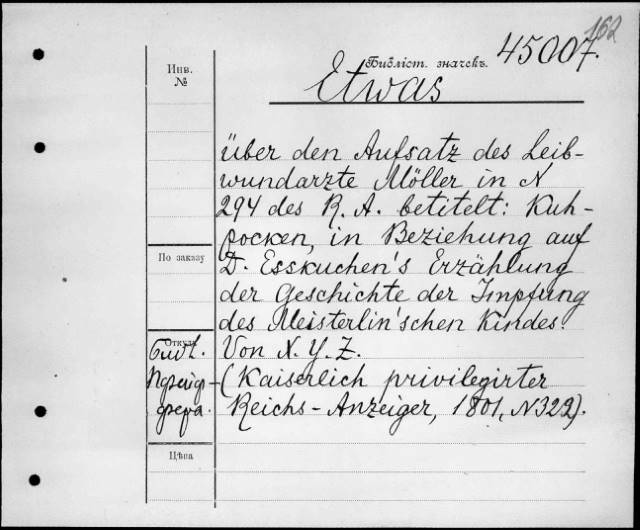 162
45007.
Библіот. значекъ.
Etwas
Инв.
№
über den Aufsatz des Leib-
wundarzte Möller in N
294 des R. A. betitelt: Kuh-
pocken, in Beziehung auf
D. Esskuchen's Erzählung
der Geschichte der Impfung
des Meisterlin'schen Kindes.
Von X. Y. Z.
(Kaiserlich privilegirter
Reichs-Anzeiger, 1801, N 322).
По заказу
Откуда
Библ.
Цѣна